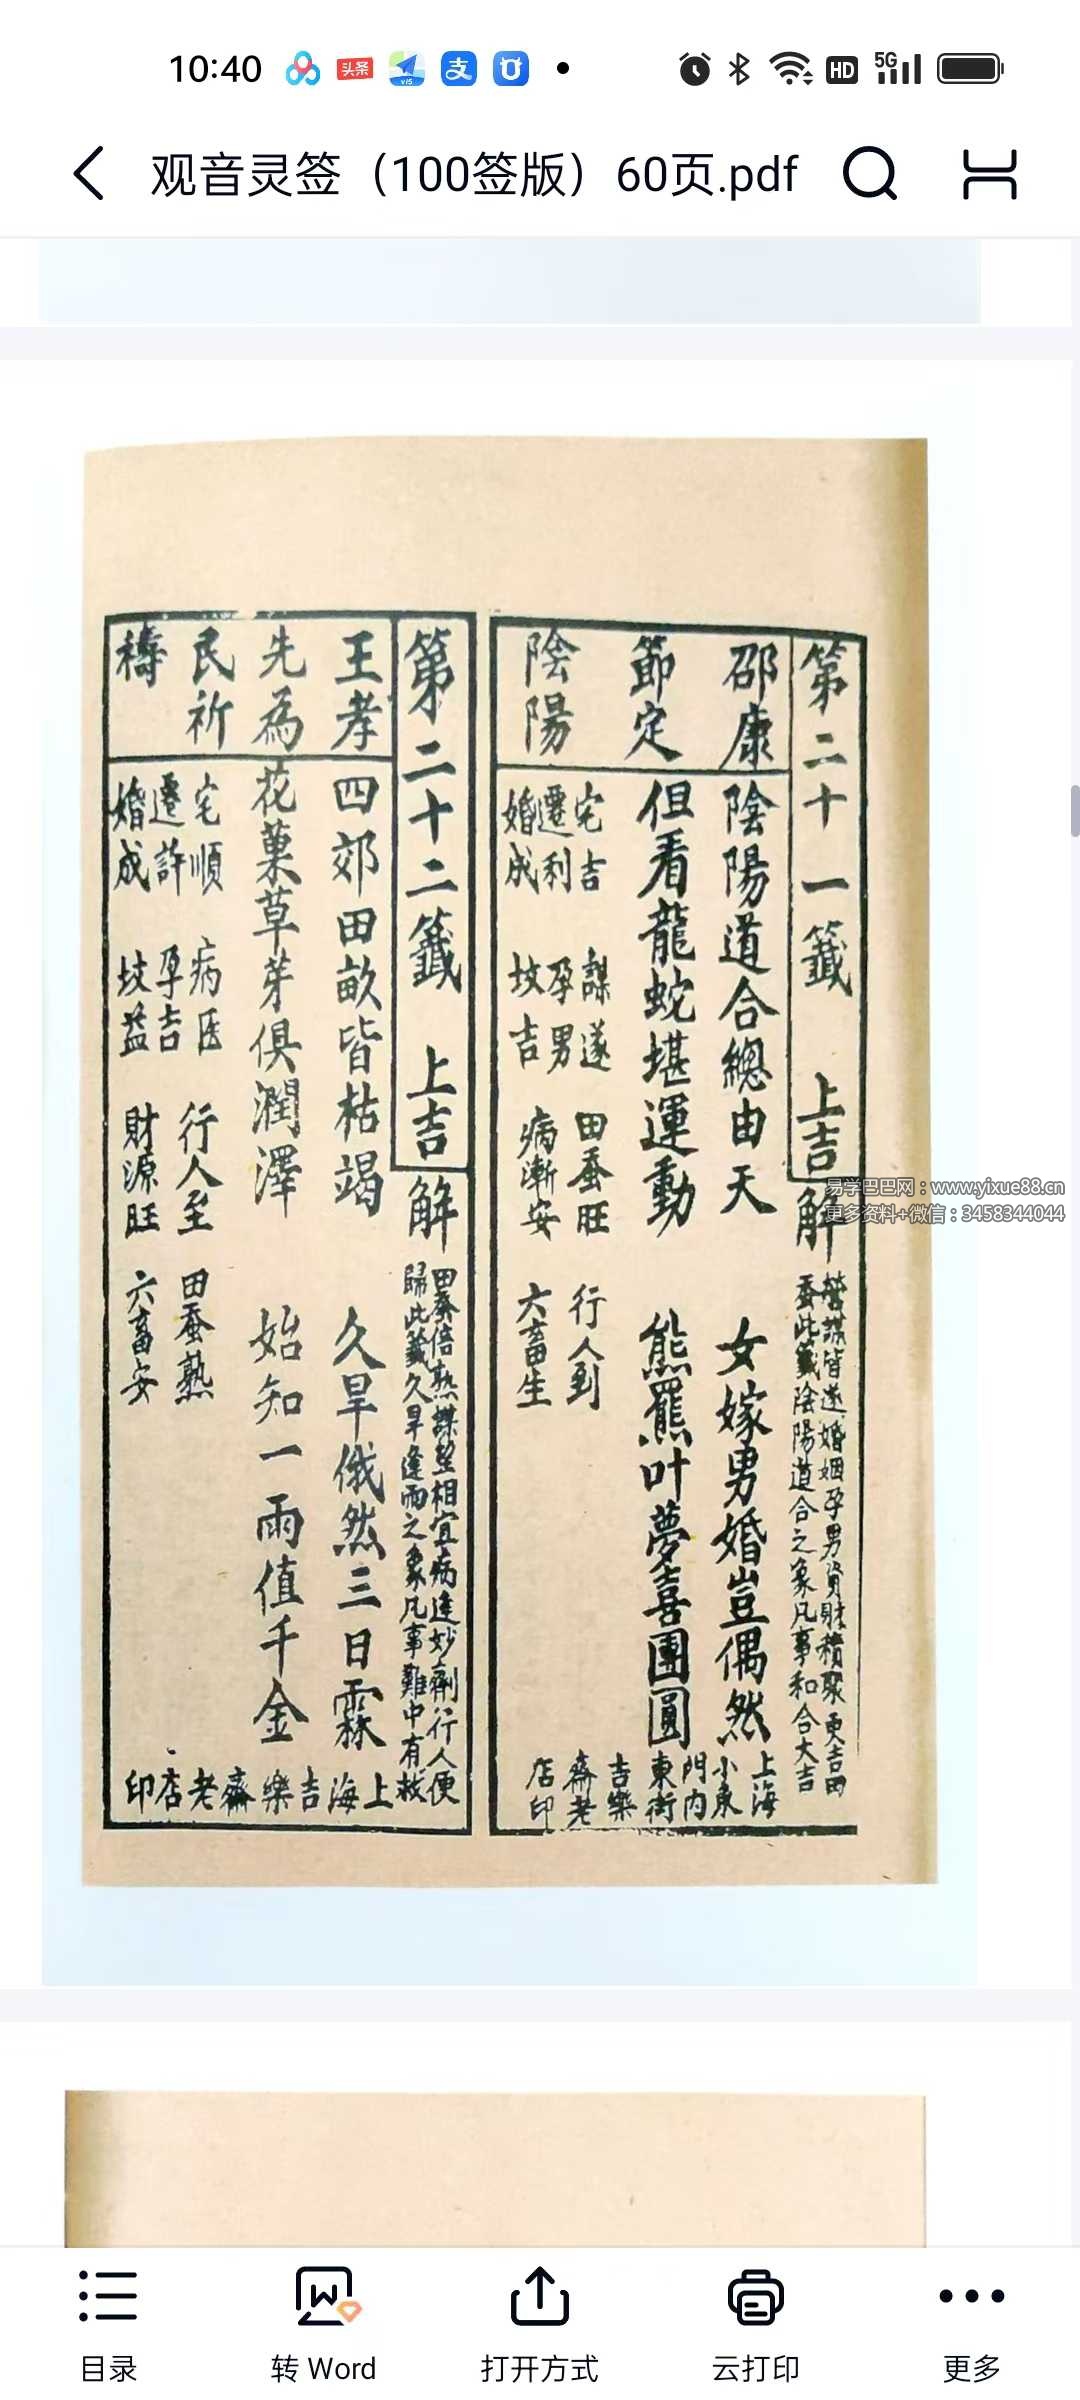 10:40
头条
支
HD
5G
观音灵签（100签版）60页.pdf
第二十一籤 上吉
解
營謀皆遂婚姻孕男資財積聚更吉田
蚕此籤陰陽道合之象凡事和合大吉
邵康
節定
陰陽
陰陽道合總由天 女嫁男婚豈偶然
但看龍蛇堪運動 熊羆叶夢喜團圓
宅吉 謀遂 田蚕旺 行人到
遷利 孕男 病漸安 六畜生
婚成 坟吉
上海
小東
門内
東街
吉樂
齋老
店印
第二十二籤 上吉
解
田蚕倍熟謀望相宜病逢妙劑行人便
歸此籤久旱逢雨之象凡事難中有救
王孝
先為
民祈
禱
四郊田畝皆枯竭 久旱俄然三日霖
花菓草芽俱潤澤 始知一雨值千金
宅順 病医 行人至 田蚕熟
遷許 孕吉 財源旺 六畜安
婚成 坟益
上海吉樂齋老店印
易学巴巴网：www.yixue88.cn
更多资料+微信：3458344044
目录
转 Word
打开方式
云打印
更多